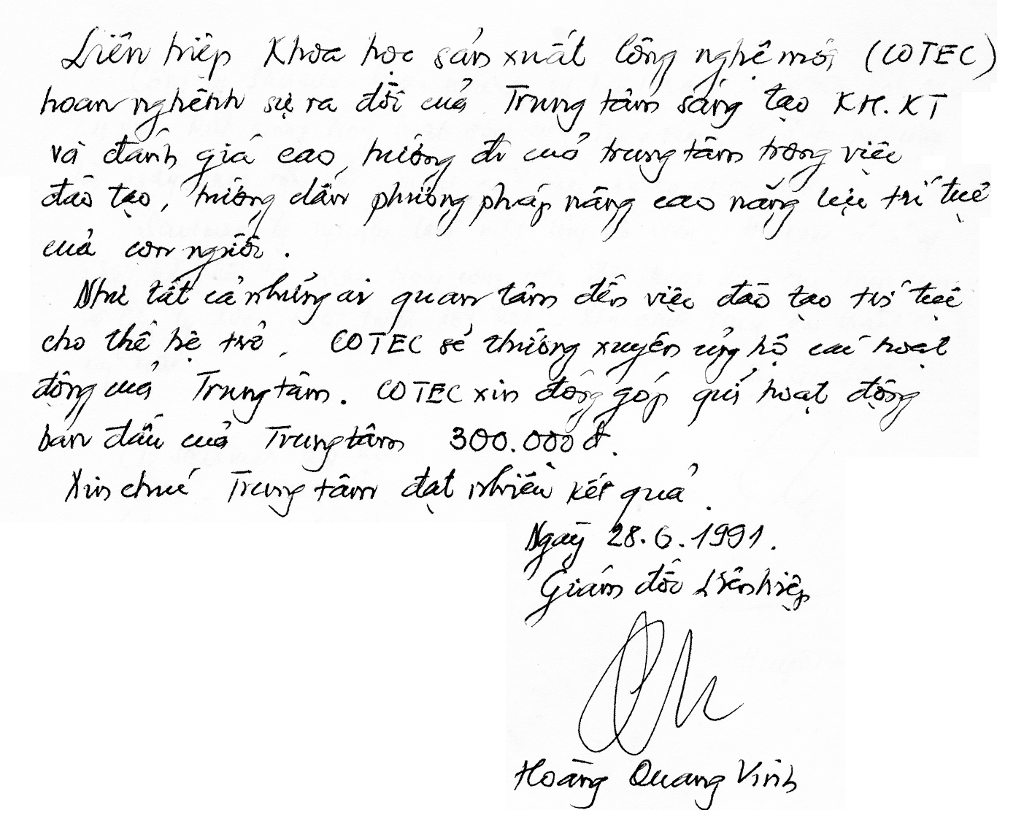 Liên hiệp Khoa học sản xuất Công nghệ mới (COTEC)
hoan nghênh sự ra đời của Trung tâm sáng tạo KH.KT
và đánh giá cao hướng đi của trung tâm trong việc
đào tạo, hướng dẫn phương pháp nâng cao năng lực trí tuệ
của con người.
Như tất cả những ai quan tâm đến việc đào tạo trí tuệ
cho thế hệ trẻ, COTEC sẽ thường xuyên ủng hộ các hoạt
động của Trung tâm. COTEC xin đóng góp quĩ hoạt động
ban đầu của Trung tâm 300.000đ.
Xin chúc Trung tâm đạt nhiều kết quả.
Ngày 28.6.1991.
Giám đốc Liên hiệp
Hoàng Quang Vinh